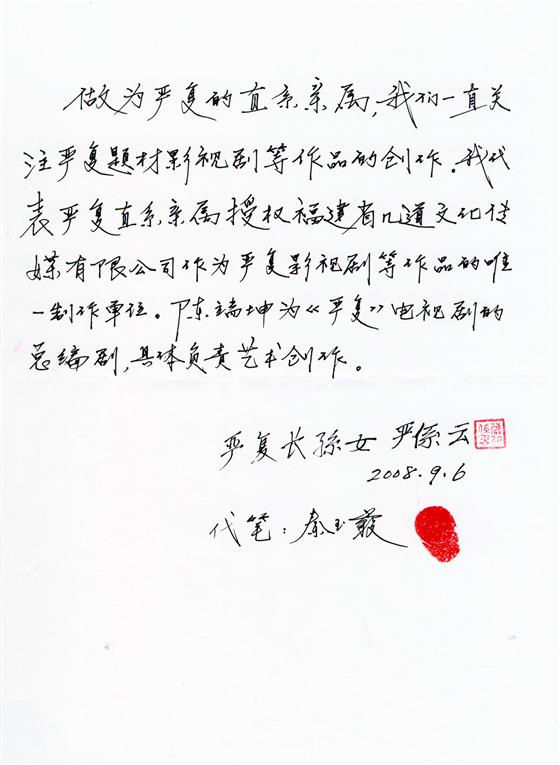 做为严复的直系亲属，我们一直关
注严复题材影视剧等作品的创作。我代
表严复直系亲属授权福建省几道文化传
媒有限公司作为严复影视剧等作品的唯
一制作单位。陈端坤为《严复》电视剧的
总编剧，具体负责艺术创作。
严复长孫女 严係云
2008.9.6
代笔：秦玉